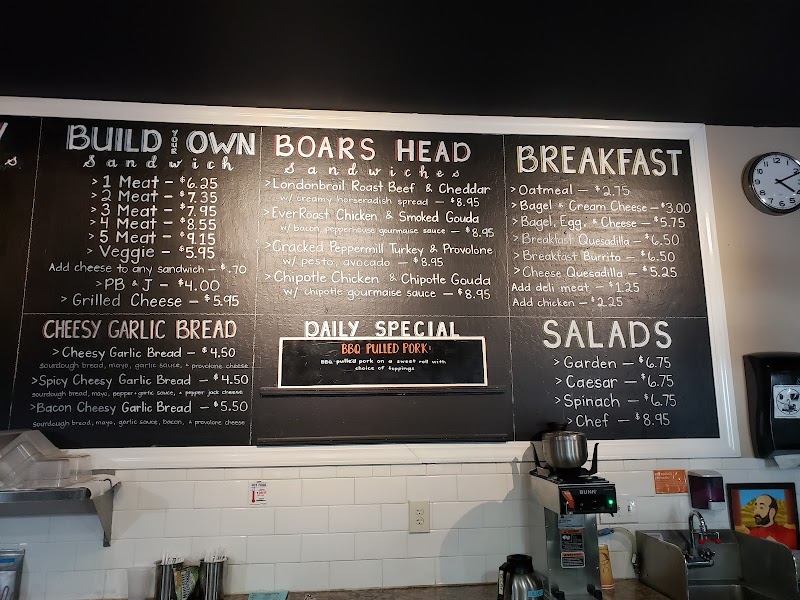 BUILD YOUR OWN
Sandwich
> 1 Meat - $6.25
> 2 Meat - $7.35
> 3 Meat - $7.95
> 4 Meat - $8.55
> 5 Meat - $9.15
> Veggie - $5.95
Add cheese to any sandwich - $.70
> PB & J - $4.00
> Grilled Cheese - $5.95
CHEESY GARLIC BREAD
> Cheesy Garlic Bread - $4.50
sourdough bread, mayo, garlic sauce, + provolone cheese
> Spicy Cheesy Garlic Bread - $4.50
sourdough bread, mayo, pepper + garlic sauce, + pepper jack cheese
> Bacon Cheesy Garlic Bread - $5.50
sourdough bread, mayo, garlic sauce, bacon, + provolone cheese
BOARS HEAD
Sandwiches
> Londonbroil Roast Beef & Cheddar
w/ creamy horseradish spread - $8.95
> EverRoast Chicken & Smoked Gouda
w/ bacon, pepperhouse gourmaise sauce - $8.95
> Cracked Peppermill Turkey & Provolone
w/ pesto, avocado - $8.95
> Chipotle Chicken & Chipotle Gouda
w/ chipotle gourmaise sauce - $8.95
DAILY SPECIAL
BBQ PULLED PORK!
BBQ pulled pork on a sweet roll with
choice of toppings
BREAKFAST
> Oatmeal - $2.75
> Bagel & Cream Cheese - $3.00
> Bagel, Egg, & Cheese - $5.75
> Breakfast Quesadilla - $6.50
> Breakfast Burrito - $6.50
> Cheese Quesadilla - $5.25
Add deli meat - $1.25
Add chicken - $2.25
SALADS
> Garden - $6.75
> Caesar - $6.75
> Spinach - $6.75
> Chef - $8.95
BUNN